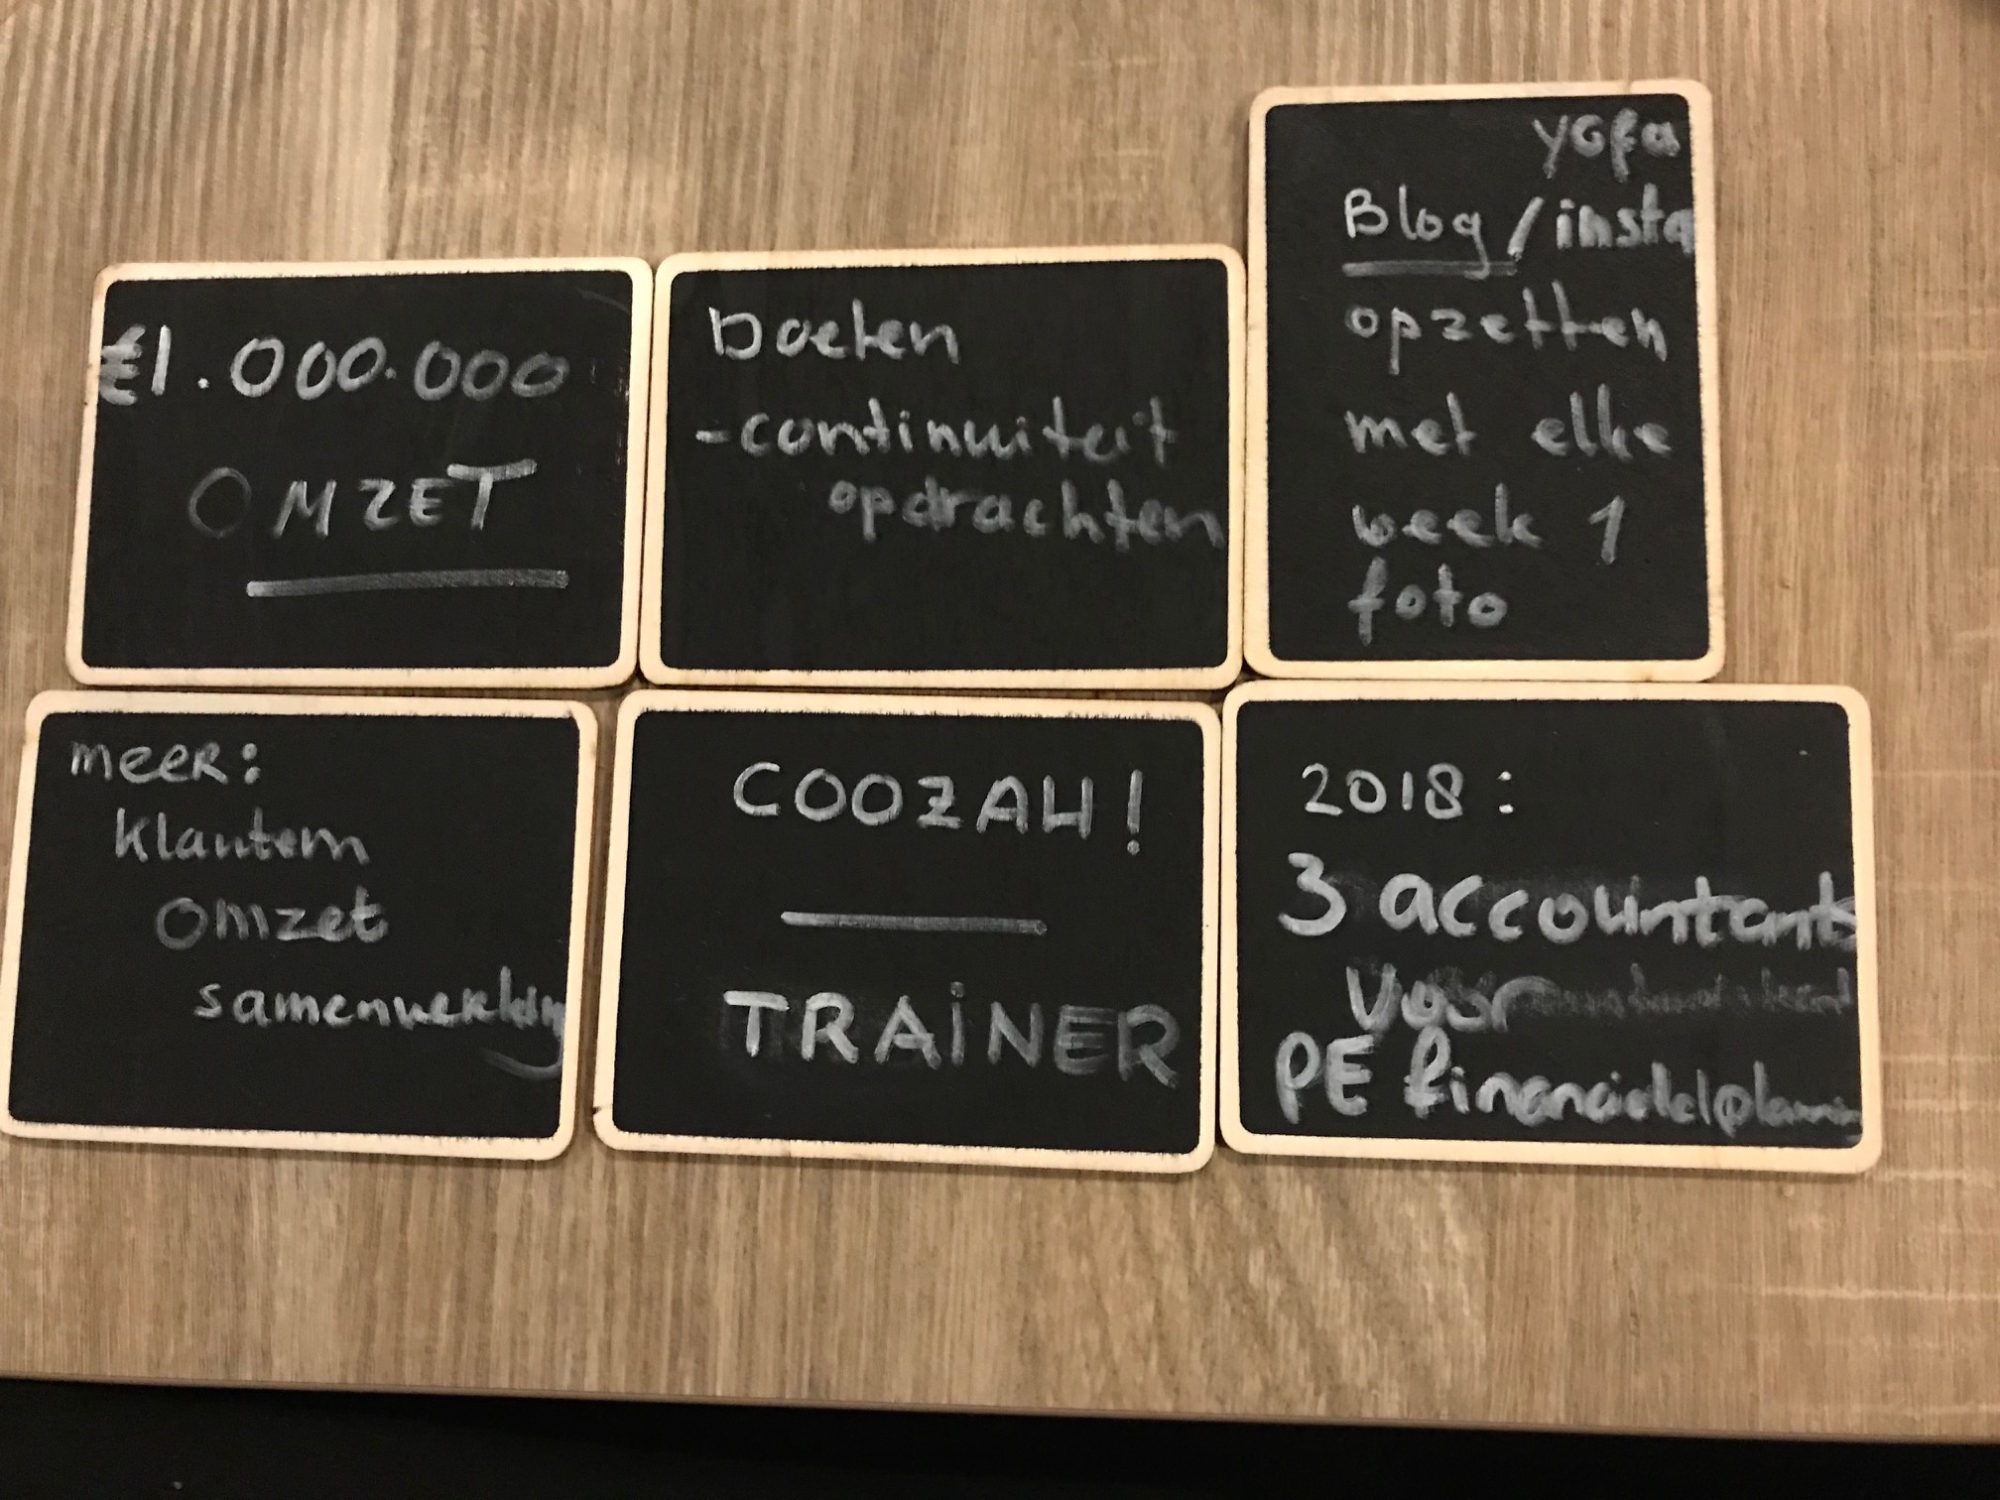 €1.000.000
OMZET
Doelen
-continuiteit
opdrachten
yoga
Blog/insta
opzetten
met elke
week 1
foto
meer:
klanten
omzet
samenwerking
COOZAH!
TRAiNER
2018:
3 accountants
voor
PE